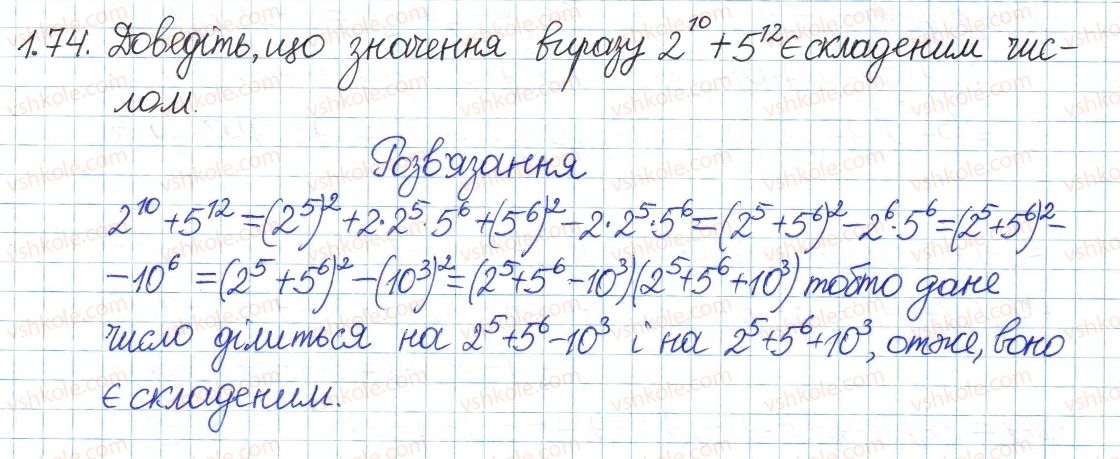 1.74. Доведіть, що значення виразу 2^10 + 5^12 є складеним чис-
лом.
Розв'язання
2^10 + 5^12 = (2^5)^2 + 2·2^5·5^6 + (5^6)^2 − 2·2^5·5^6 = (2^5 + 5^6)^2 − 2^6·5^6 = (2^5 + 5^6)^2 −
− 10^6 = (2^5 + 5^6)^2 − (10^3)^2 = (2^5 + 5^6 − 10^3)(2^5 + 5^6 + 10^3) тобто дане
число ділиться на 2^5 + 5^6 − 10^3 і на 2^5 + 5^6 + 10^3, отже, воно
є складеним.
vshkole.com